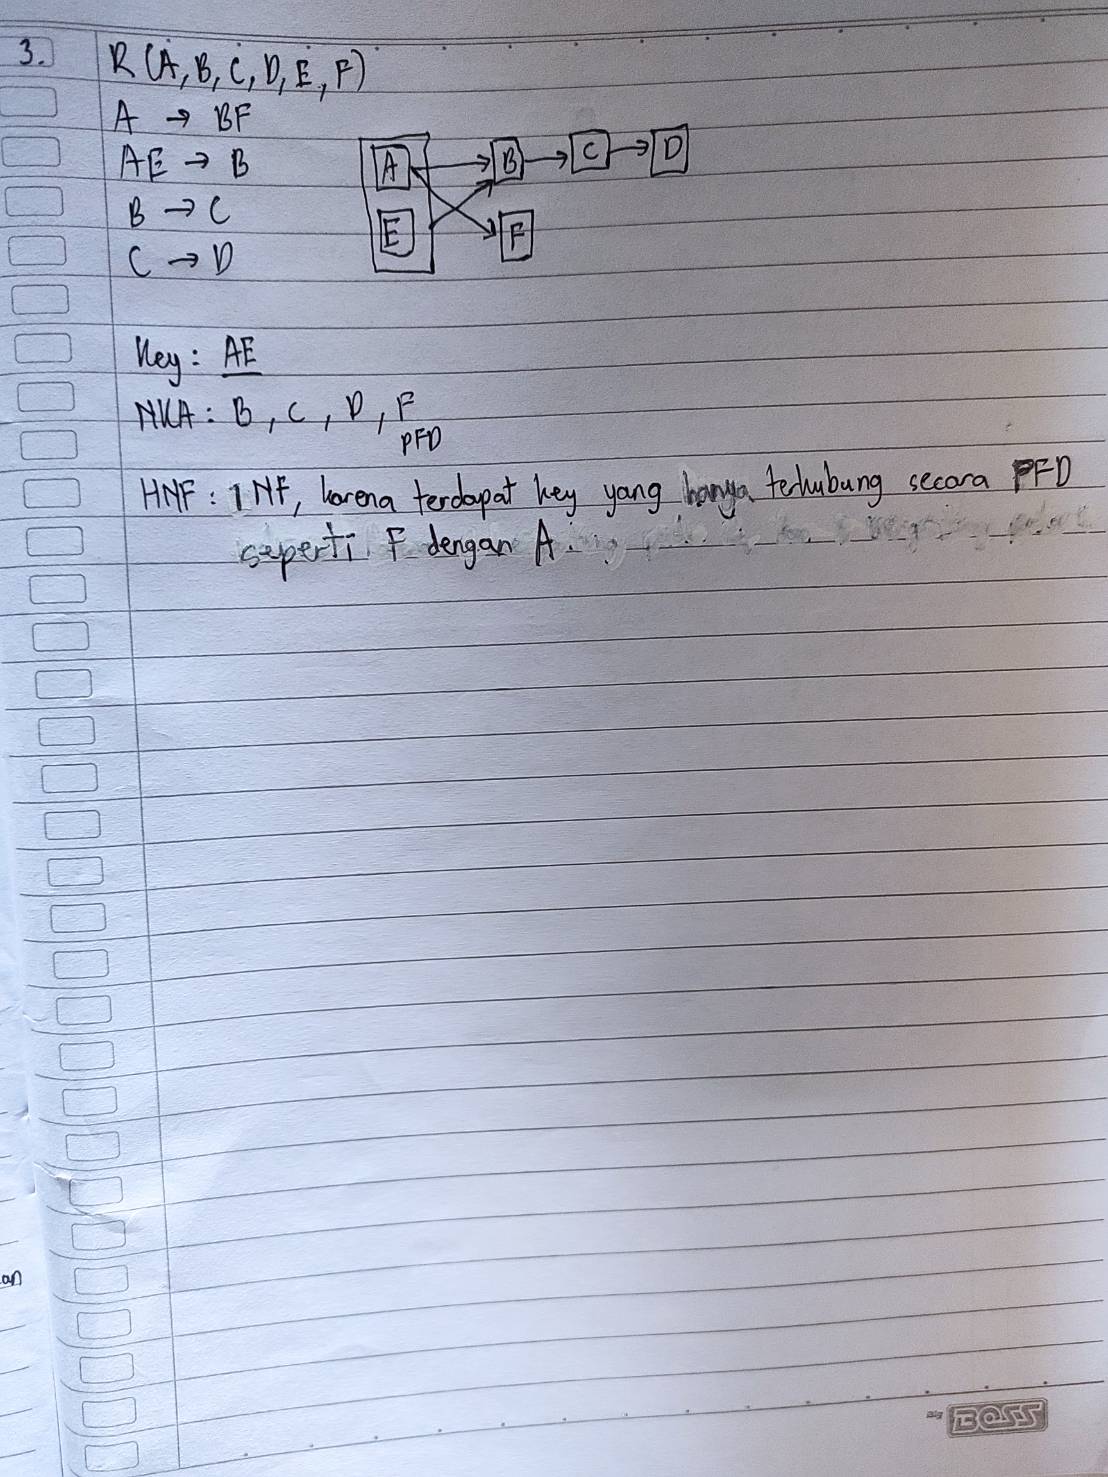 3. R(A, B, C, D, E, F)
A → BF
AE → B
B → C
C → D
A B C D
E F
Key: AE
NKA: B, C, D, F
PFD
HNF: 1NF, karena terdapat key yang hanya terhubung secara PFD
seperti F dengan A.
an
BOSS